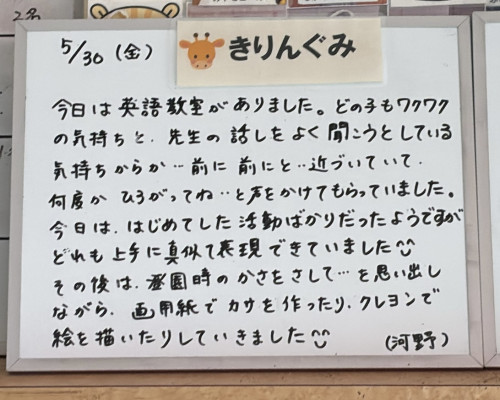 5/30 (金)
きりんぐみ
今日は英語教室がありました。どの子もワクワク
の気持ちと、先生の話しをよく聞こうとしている
気持ちからか…前に前にと…近づいていて、
何度か ひろがってね…と声をかけてもらっていました。
今日は、はじめてした活動ばかりだったようですが
どれも上手に真似て表現できていました^^
その後は、登園時のかさをさして…を思い出し
ながら、画用紙でカサを作ったり、クレヨンで
絵を描いたりしていきました^^
(河野)